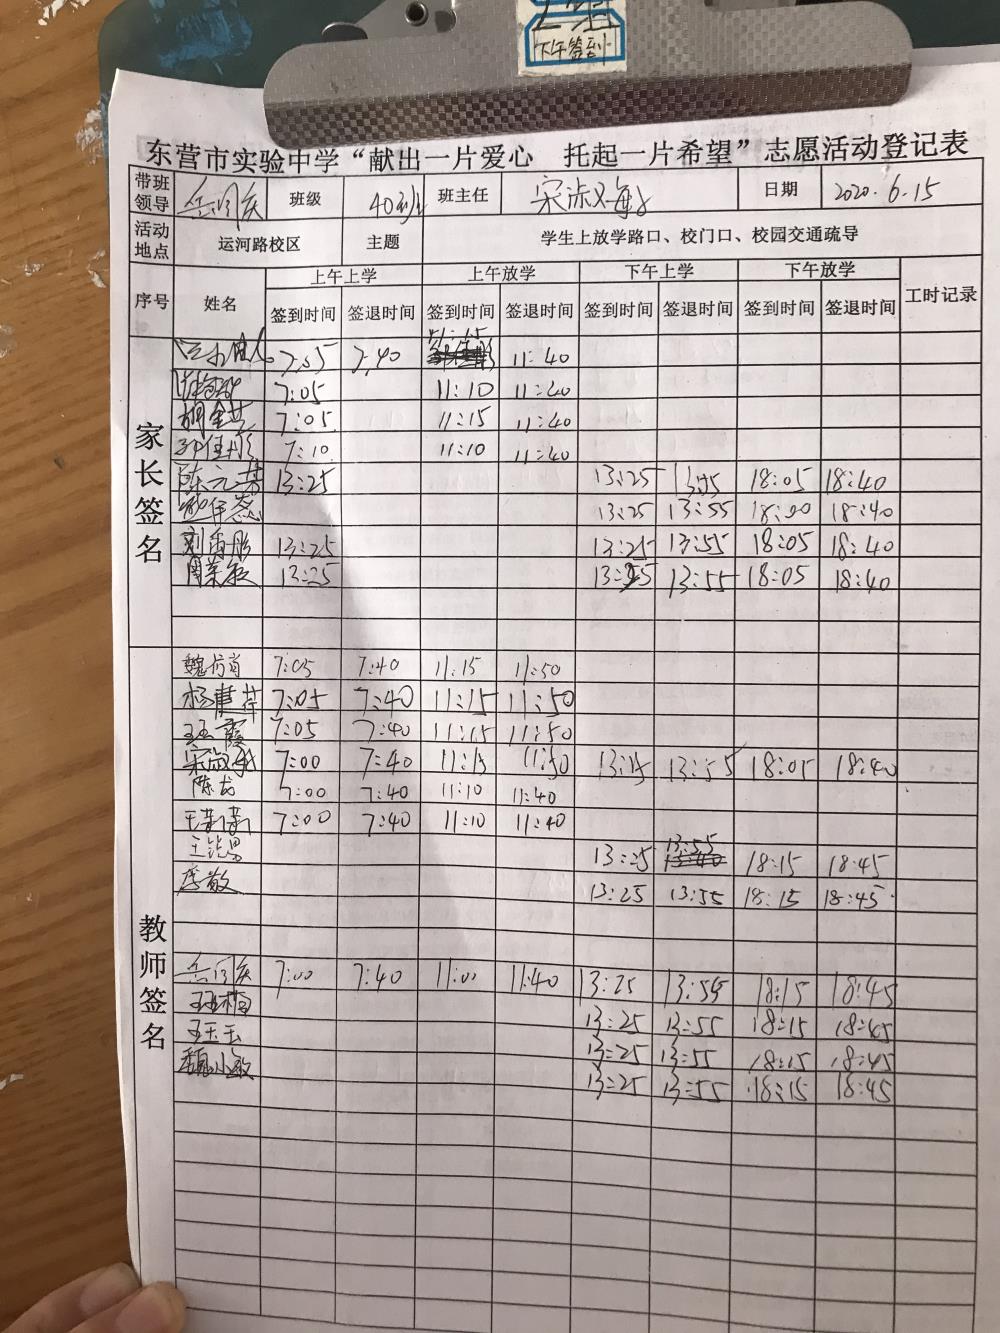 下午签到
东营市实验中学“献出一片爱心 托起一片希望”志愿活动登记表
带班领导 班级 40 班主任 宋淑敏 日期 2020.6.15
活动地点 运河路校区 主题 学生上放学路口、校门口、校园交通疏导
序号 姓名 上午上学 上午放学 下午上学 下午放学 工时记录
签到时间 签退时间 签到时间 签退时间 签到时间 签退时间 签到时间 签退时间
家长签名
7:05 7:40 11:15 11:40
7:05 11:10 11:40
7:05 11:15 11:40
孙佳彤 7:10 11:10 11:40
13:25 13:25 13:55 18:05 18:40
13:25 13:55 18:00 18:40
13:25 13:25 13:55 18:05 18:40
13:25 13:25 13:55 18:05 18:40
教师签名
7:05 7:40 11:15 11:50
7:05 7:40 11:15 11:50
王玉霞 7:05 7:40 11:15 11:50
宋淑敏 7:00 7:40 11:15 11:50 13:15 13:55 18:05 18:40
陈龙 7:00 7:40 11:10 11:40
王莉莉 7:00 7:40 11:10 11:40
13:25 13:55 18:15 18:45
李敏 13:25 13:55 18:15 18:45
7:00 7:40 11:00 11:40 13:25 13:55 18:15 18:45
13:25 13:55 18:15 18:45
王玉玉 13:25 13:55 18:15 18:45
魏小敏 13:25 13:55 18:15 18:45